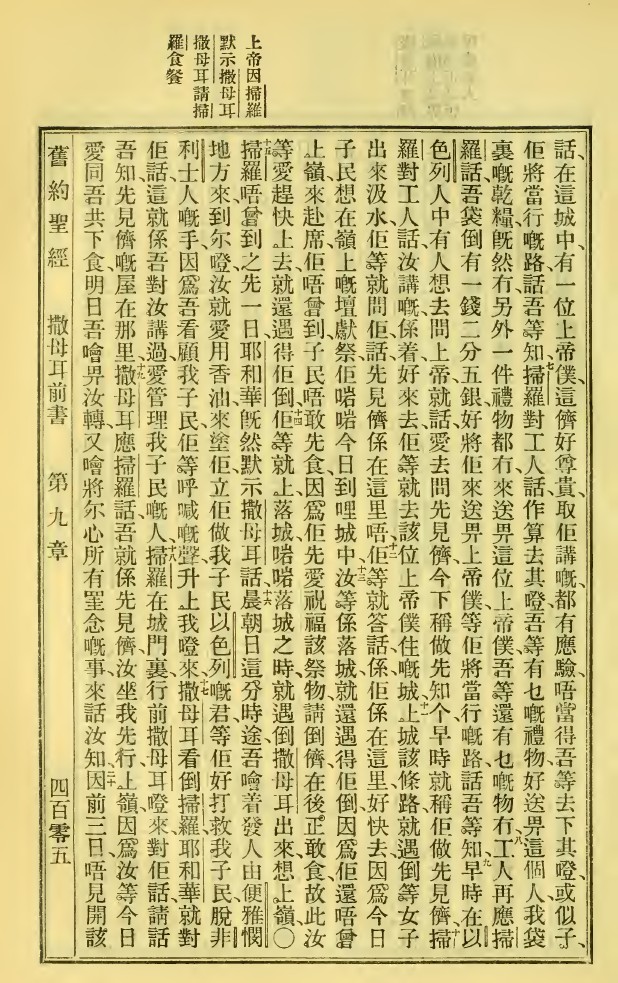 上帝因掃羅
默示撒母耳
撒母耳請掃
羅食餐
話、在這城中、有一位上帝僕、這儕好尊貴、取佢講嘅、都有應驗、唔當得吾等去下其噔、或似子、
佢將當行嘅路話吾等知、七掃羅對工人話、作算去其噔、吾等有乜嘅禮物好送畀這個人、我袋
裏嘅乾糧旣然冇、另外一件禮物都冇來送畀這位上帝僕、吾等還有乜嘅物冇、八工人再應掃
羅話、吾袋倒有一錢二分五銀、好將佢來送畀上帝僕、等佢將當行嘅路話吾等知、九早時在以
色列人中、有人想去問上帝、就話、愛去問先見儕、今下稱做先知个、早時就稱佢做先見儕、十掃
羅對工人話、汝講嘅係着、好來去、佢等就去該位上帝僕住嘅城、十一上城該條路、就遇倒等女子
出來汲水、佢等就問佢話、先見儕係在這里唔、十二佢等就答話、係、佢係在這里、好快去、因爲今日
子民想在嶺上嘅壇獻祭、佢啱啱今日到哩城中、十三汝等係落城、就還遇得佢倒、因爲佢還唔曾
上嶺來赴席、佢唔曾到、子民唔敢先食、因爲佢先愛祝福該祭物、請倒儕在後正敢食、故此汝
等愛趕快上去、就還遇得佢倒、十四佢等就上落城、啱啱落城之時、就遇倒撒母耳出來想上嶺、〇
十五掃羅唔曾到之先一日、耶和華旣然默示撒母耳話、十六晨朝日這分時途、吾噲着發人由便雅憫
地方來到尔噔、汝就愛用香油來塗佢、立佢做我子民以色列嘅君、等佢好打救我子民脫非
利士人嘅手、因爲吾看顧我子民、佢等呼喊嘅聲、升上我噔來、十七撒母耳看倒掃羅、耶和華就對
佢話、這就係吾對汝講過、愛管理我子民嘅人、十八掃羅在城門裏行前撒母耳噔來、對佢話、請話
吾知、先見儕嘅屋在那里、十九撒母耳應掃羅話、吾就係先見儕、汝坐我先行上嶺、因爲汝等今日
愛同吾共下食、明日吾噲畀汝轉、又噲將尔心所有罣念嘅事、來話汝知、二十因前三日唔見開該
舊約聖經　撒母耳前書　第九章　四百零五